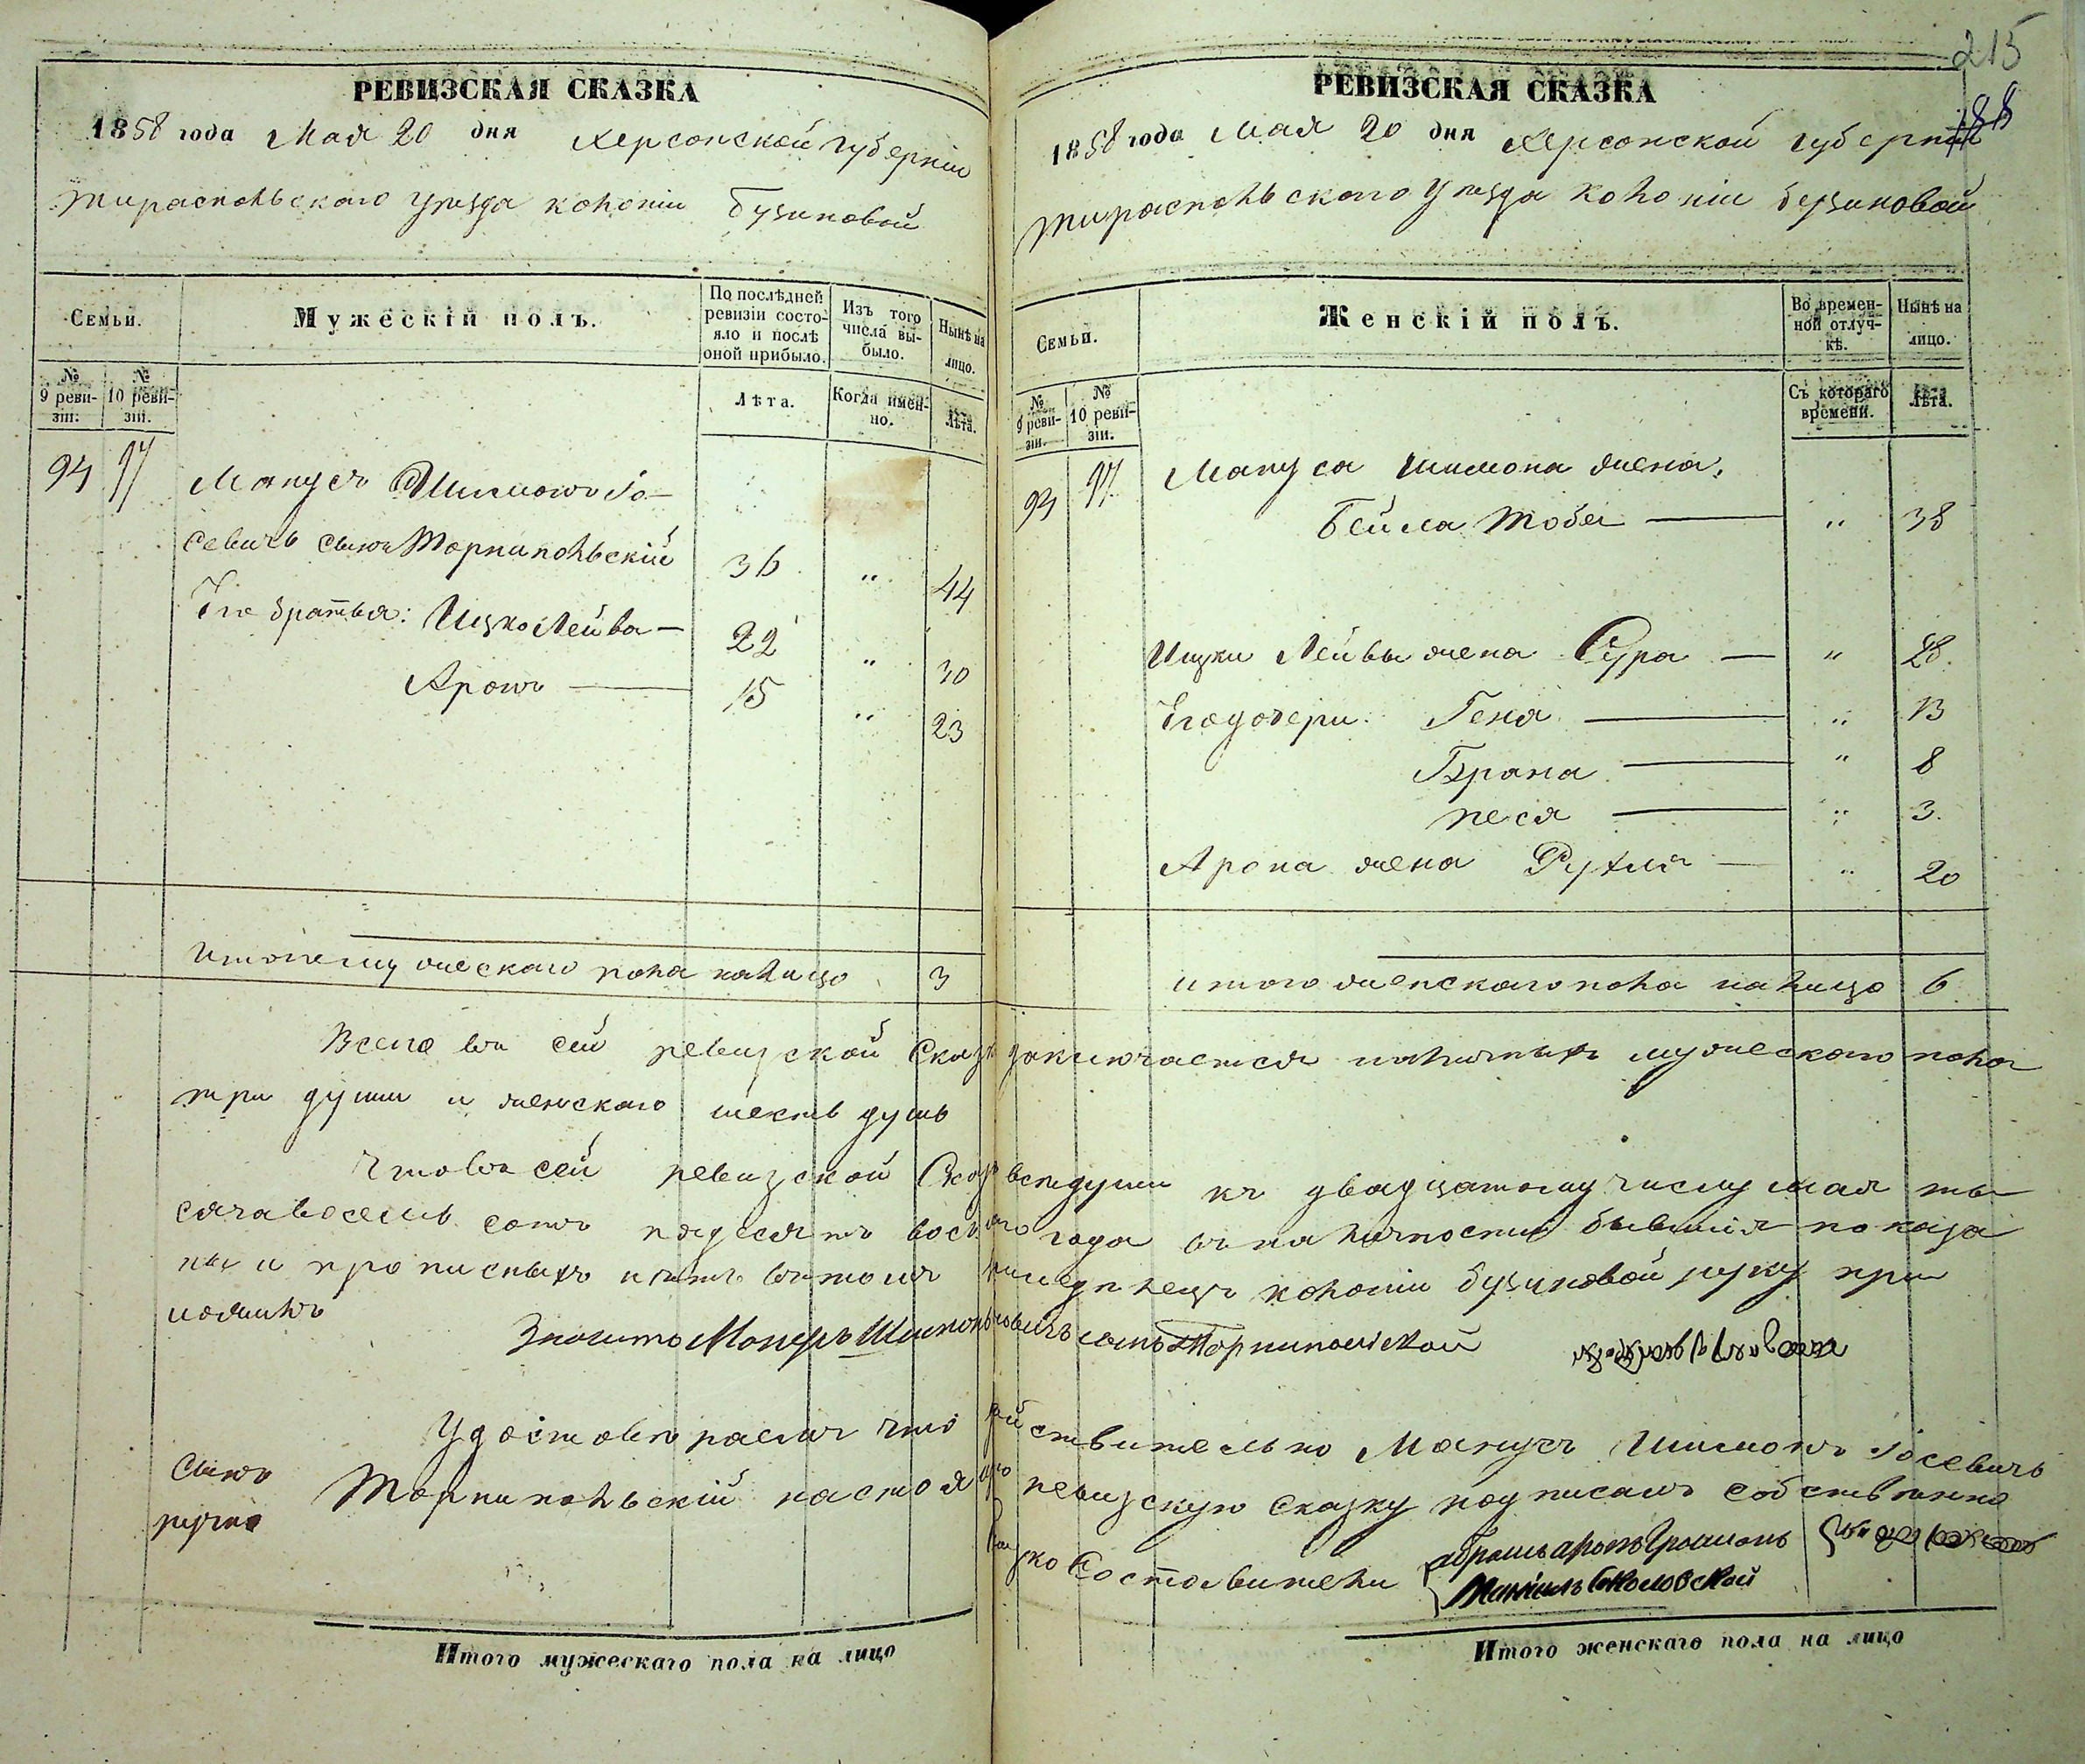 215
188
РЕВИЗСКАЯ СКАЗКА
1858 года Мая 20 дня Херсонской губерніи
Тираспольскаго уѣзда колоніи Бузиновой
Семьи.
Мужескій полъ.
По послѣдней ревизіи состояло и послѣ оной прибыло.
Изъ того числа выбыло.
Нынѣ на лицо.
№ 9 ревизіи.
№ 10 ревизіи.
Лѣта.
Когда именно.
Лѣта.
94 97 Манусъ Шимонъ Іо-
севичъ сынъ Тарнипольскій 36 " 44
Его братья: Ицко Лейба — 22 " 30
Аронъ — 15 " 23
Итого мужескаго пола налицо 3
РЕВИЗСКАЯ СКАЗКА
1858 года Мая 20 дня Херсонской губерніи
Тираспольскаго уѣзда колоніи Бузиновой
Семьи.
Женскій полъ.
Во временной отлучкѣ.
Нынѣ на лицо.
№ 9 ревизіи.
№ 10 ревизіи.
Съ котораго времени.
Лѣта.
94 97 Мануса Шимона жена,
Бейла Тоба — " 38
Ицки Лейбы жена Сура — " 28.
Его дочери: Геня — " 13
Брана — " 8
Песя — " 3.
Арона жена Рухля — " 20
итого женскаго пола налицо 6
Всего въ сей ревизской Сказкѣ заключается наличныхъ мужескаго пола
три души и женскаго шесть душъ
Что въ сей ревизской Сказкѣ всѣ души къ двадцатому числу мая ты-
сяча восемь сотъ пядесятъ восьмаго года въ наличности бывшія показа
ны и прописныхъ нѣтъ въ томъ колоніи Бузиновой руку при
ложилъ
Манусъ Шимонъ сынъ Тарнипольской
Удостовѣряемъ что дѣйствительно Манусъ Шимонъ Іосевичъ
сынъ Тарнипольскій настоящую ревизскую Сказку подписалъ собственно
ручно
Составители
Итого мужескаго пола на лицо
Итого женскаго пола на лицо